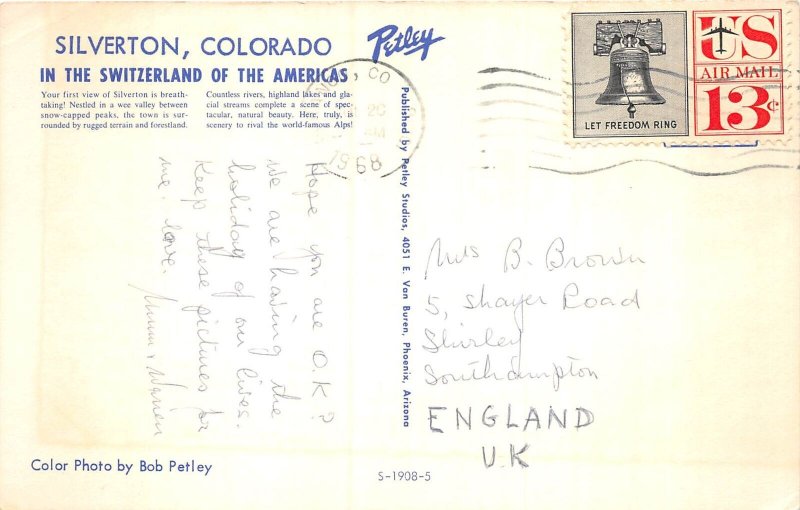 SILVERTON, COLORADO
IN THE SWITZERLAND OF THE AMERICAS
Your first view of Silverton is breath-
taking! Nestled in a wee valley between
snow-capped peaks, the town is sur-
rounded by rugged terrain and forestland.
Countless rivers, highland lakes and gla-
cial streams complete a scene of spec-
tacular, natural beauty. Here, truly, is
scenery to rival the world-famous Alps!
Petley
CO
1968
LET FREEDOM RING
US
AIR MAIL
13c
Hope you are O.K?
We are having the
holiday of our lives.
Keep these pictures for
me. love.
Mum &
Published by Petley Studios, 4051 E. Van Buren, Phoenix, Arizona
Mrs B. Brown
5, Shayer Road
Shirley
Southampton
ENGLAND
U.K
Color Photo by Bob Petley
S-1908-5